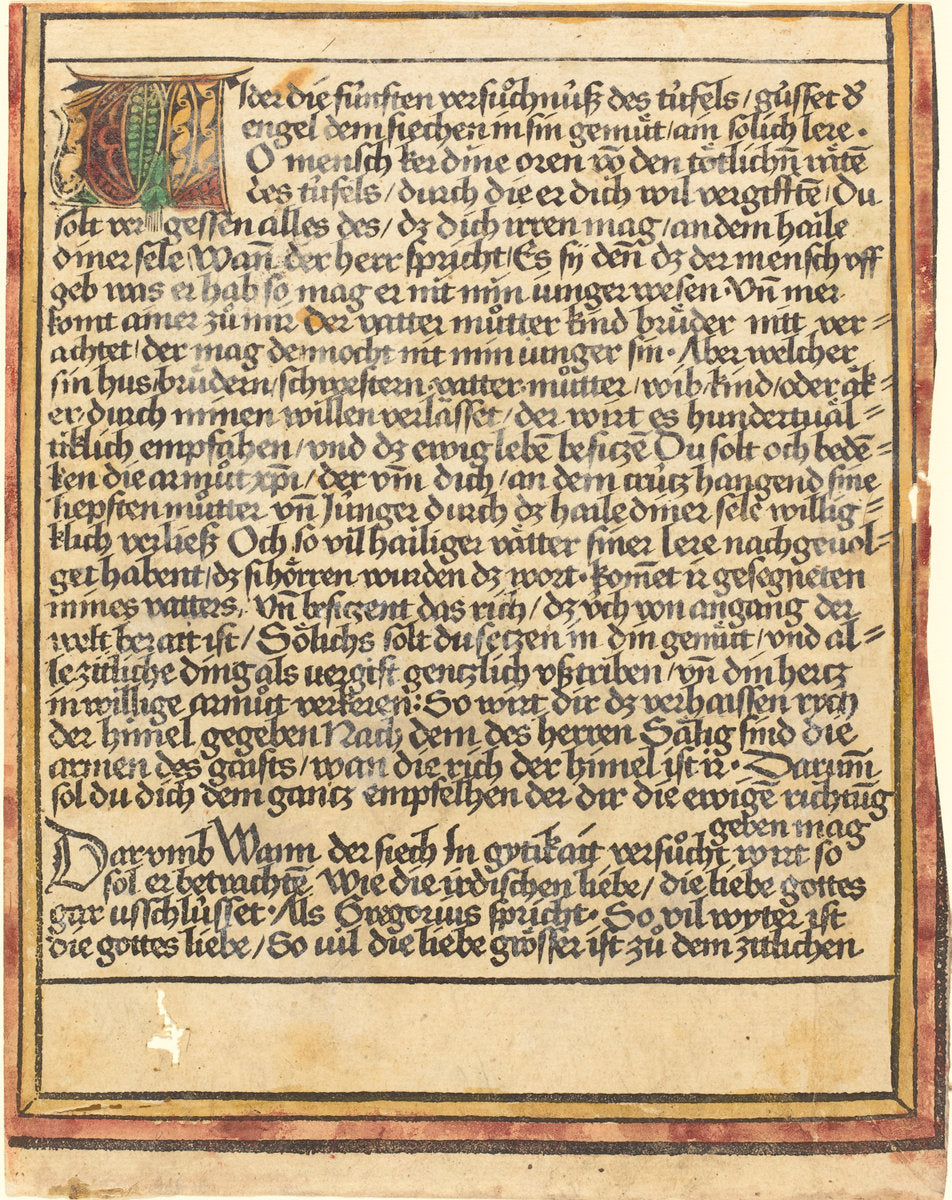 WJder die fünften versuͦchnüß des tüfels / güsset d'
engel dem siechen in sin gemuͤt / ain solich lere ·
O mensch ker dine oren vō den toͤtlichn̄ raͤtē
des tüfels / durch die er dich wil vergifftē / Du
solt ver gessen alles des / dz dich irren mag / an dem haile
diner sele / Wan̄ der herr spricht / Es sy den̄ dz der mensch vff
geb was er hab so mag er nit min iunger wesen · Vn̄ mer
komt ainer zuͦ mir der vatter muͦtter kind bruͤder nitt ver =
achtet / der mag dennocht nit min iunger sin · Aber welcher
sin hus / bruͤdern / schwestern vatter muͦtter / wib / kind / oder aͤk =
er durch minen willen verlaͤsset / der wirt es hundertuaͤl =
tiklich empfahen / vnd dz ewig lebē besiczē Du solt och bedē =
ken die armuͦt xp̄i / der vm̄ dich / an dem crütz hangend sine
liepsten muͦtter vn̄ Jünger durch dz haile diner sele willig =
klich verließ Och so vil hailiger vaͤtter siner lere nachgeuol =
get habent / dz si hoͤrren wurden dz wort · kom̄et ir gesegneten
mines vatters, vn̄ besiczent das rich / dz vch von angang der
welt berait ist / Soͤlichs solt du setzen in din gemuͤtt / vnd al =
le zitliche ding als vergift genczlich vßtriben / vn̄ din hertz
in willige armuͦtt verkeren : So wirt dir dz verhaissen rych
der him̄el gegeben Nach dem des herren Saͤlig sind die
armen des gaists / wan die rich der him̄el ist ir · Darum̄
sol du dich dem gantz empfelhen der dir die ewigē richtūg
geben mag
Darvmb Wann der siech Jn gytikait versuͦcht wirt so
sol er betrachtē Wie die irdischen liebe / die liebe gottes
gar usschlüsset · Als Gregorius spricht · So vil wyter ist
die gottes liebe / So uil die liebe groͤsser ist zuͦ dem zitlichen